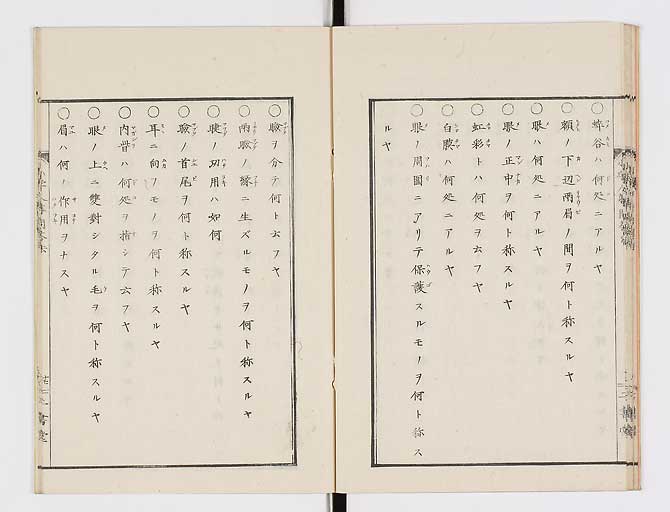 ○蟀谷ハ何処ニアルヤ
○額ノ下辺両眉ノ間ヲ何ト称スルヤ
○眼ハ何処ニアルヤ
○眼ノ正中ヲ何ト称スルヤ
○虹彩トハ何処ヲ云フヤ
○白膜ハ何処ニアルヤ
○眼ノ周囲ニアリテ保護スルモノヲ何ト称ス
ルヤ
○瞼ヲ分テ何ト云フヤ
○両瞼ノ縁ニ生ズルモノヲ何ト称スルヤ
○睫ノ功用ハ如何
○瞼ノ首尾ヲ何ト称スルヤ
○耳ニ向フモノヲ何ト称スルヤ
○内眥ハ何処ヲ指シテ云フヤ
○眼ノ上ニ双対シタル毛ヲ何ト称スルヤ
○眉ハ何ノ作用ヲナスヤ